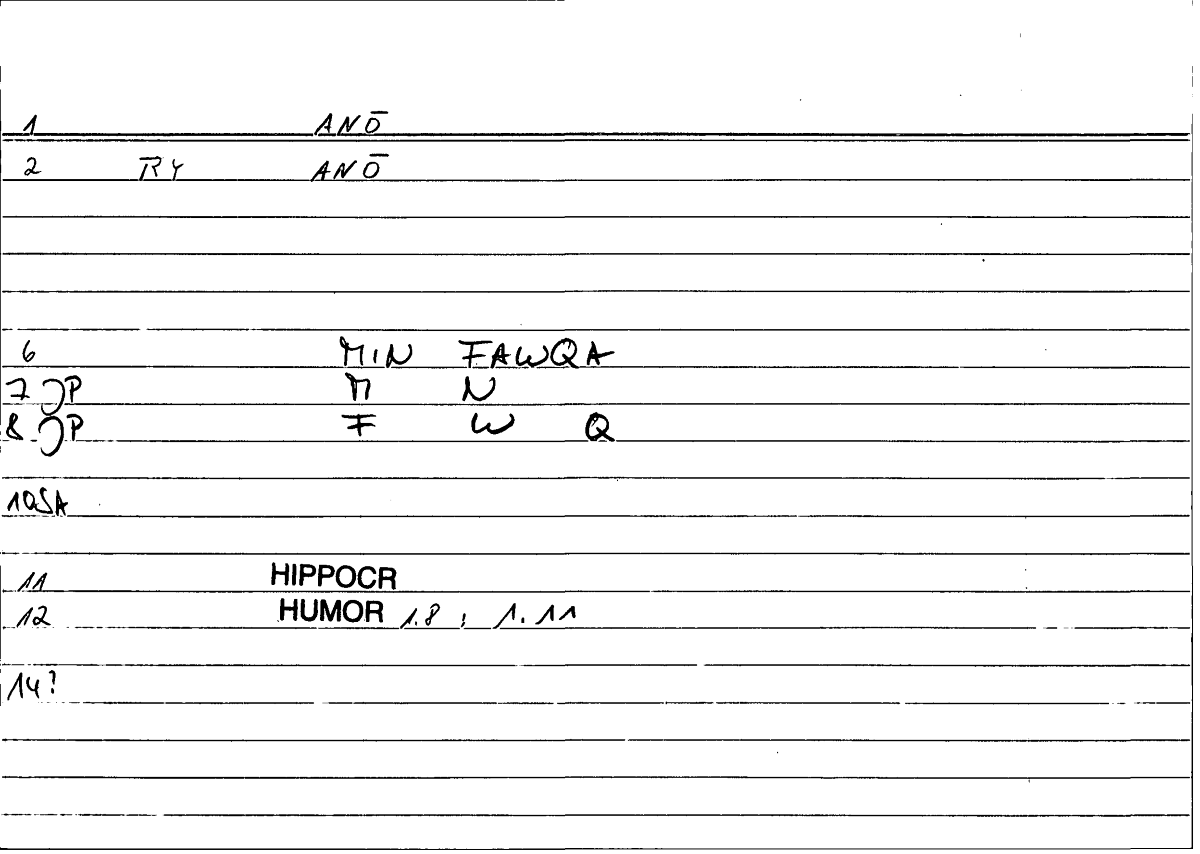 1 ANŌ
2 R̄Y ANŌ
6 MIN FAWQA
7 JP M N
8 JP F W Q
10SA
11 HIPPOCR
12 HUMOR 1.8 ; 1.11
14?